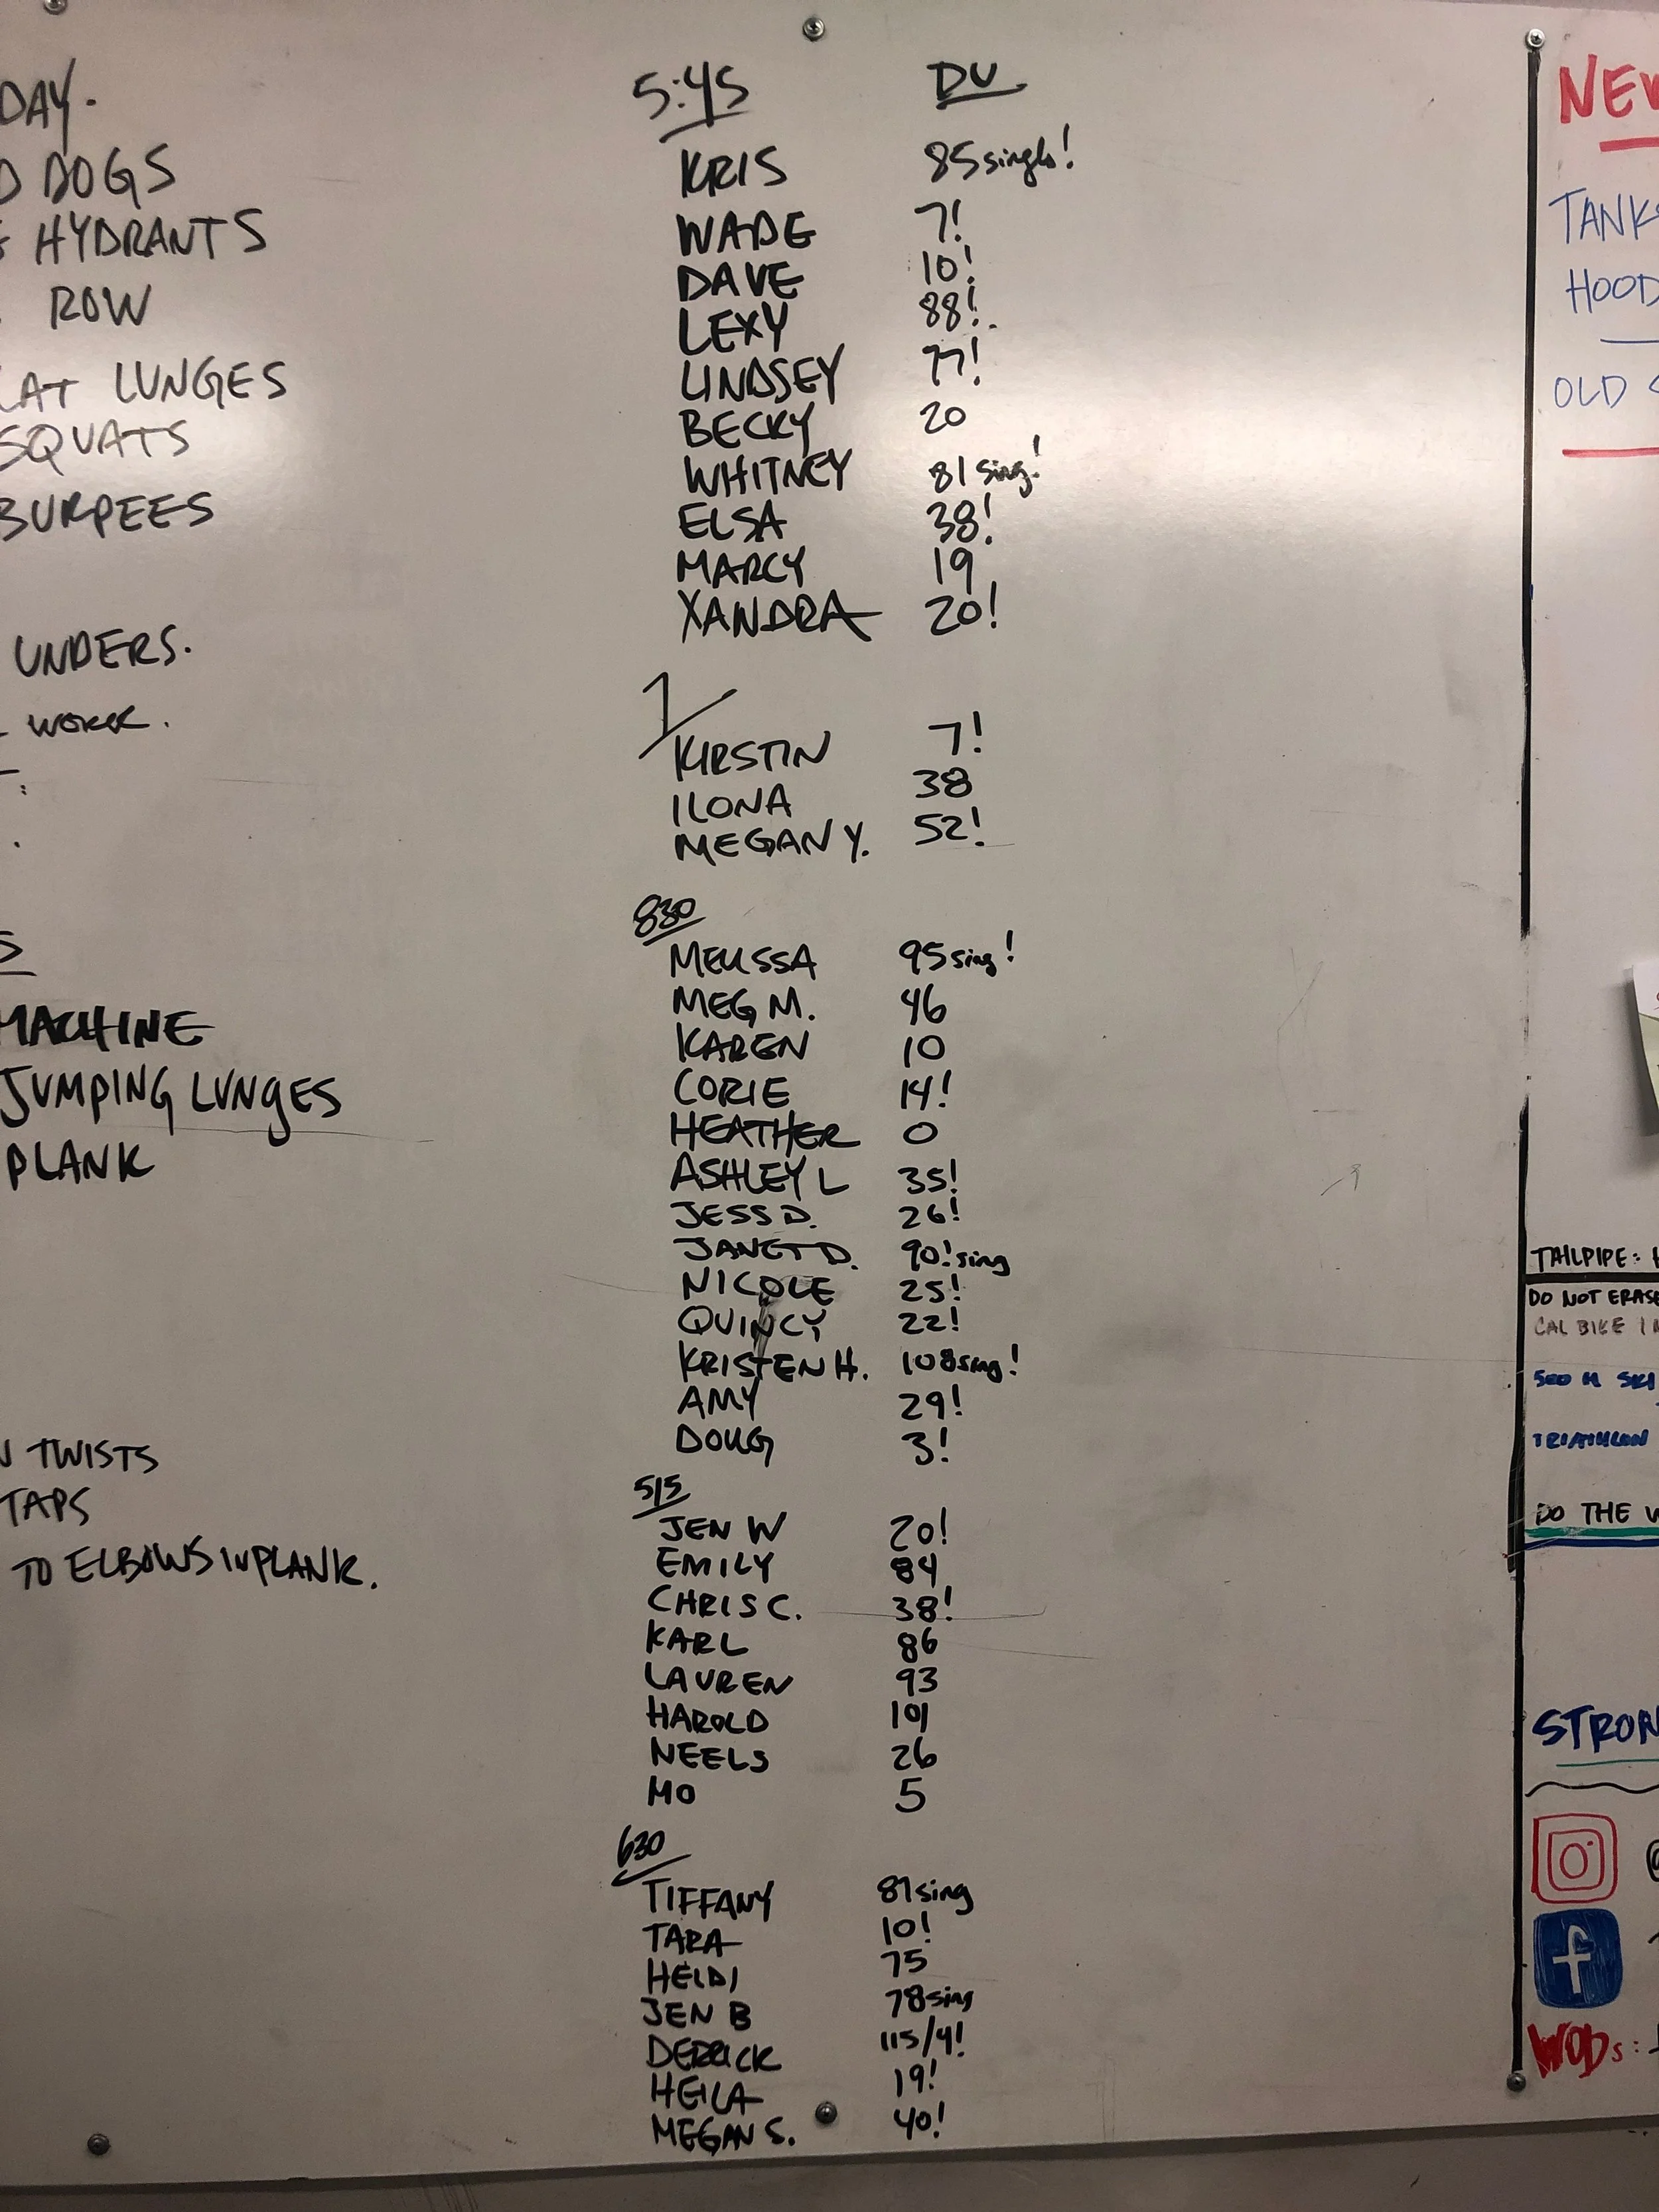 DAY.
DOGS
HYDRANTS
ROW
LAT LUNGES
SQUATS
BURPEES
UNDERS.
WORK.
MACHINE
JUMPING LUNGES
PLANK
TWISTS
TAPS
TO ELBOWS IN PLANK.
5:45 DU
KRIS 85 singls!
WADE 7!
DAVE 10!
LEXY 88!
LINDSEY 77!
BECKY 20
WHITNEY 81 sing!
ELSA 38!
MARCY 19
XANDRA 20!
7
KIRSTIN 7!
ILONA 38
MEGAN Y. 52!
830
MELISSA 95 sing!
MEG M. 46
KAREN 10
CORIE 14!
HEATHER 0
ASHLEY L 35!
JESS D. 26!
JANET D. 90! sing
NICOLE 25!
QUINCY 22!
KRISTEN H. 108 sing!
AMY 29!
DOUG 3!
515
JEN W 20!
EMILY 84
CHRIS C. 38!
KARL 86
LAUREN 93
HAROLD 101
NEELS 26
MO 5
630
TIFFANY 81 sing
TARA 10!
HEIDI 75
JEN B 78 sing
DERRICK 115/4!
HEILA 19!
MEGAN S. 40!
NEW
TANKS
HOOD
OLD
TAILPIPE:
DO NOT ERASE
CAL BIKE 1
500 M SKI
TRIATHLON
DO THE
STRON
f
WODs: